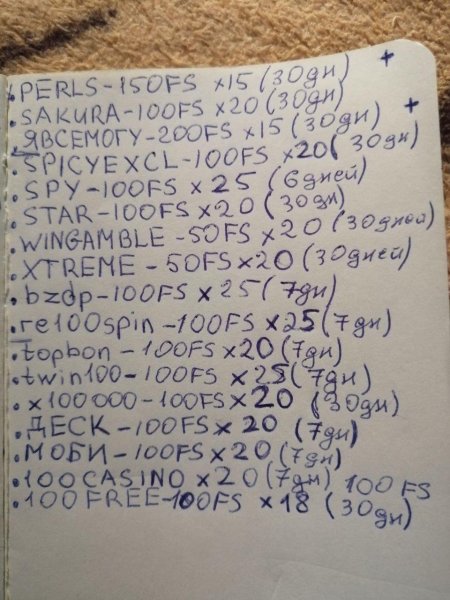 +
• PERLS-150FS ×15 (30дн)
• SAKURA-100FS ×20 (30дн) +
• ЯВСЕМОГУ-200FS ×15 (30дн)
• SPICYEXCL-100FS ×20 (30дн)
• SPY-100FS × 25 (6 дней)
• STAR-100FS ×20 (30дн)
• WINGAMBLE-50FS ×20 (30дней)
• XTREME-50FS×20 (30дней)
• bzdp-100FS × 25 (7дн)
• re100spin-100FS ×25 (7дн)
• topbon-100FS ×20 (7дн)
• twin100-100FS ×25 (7дн)
• x100000-100FS × 20 (30дн)
• ДЕСК-100FS × 20 (7дн)
• МОБИ-100FS ×20 (7дн)
• 100CASINO ×20 (7дн) 100FS
• 100FREE-100FS ×18 (30дн)